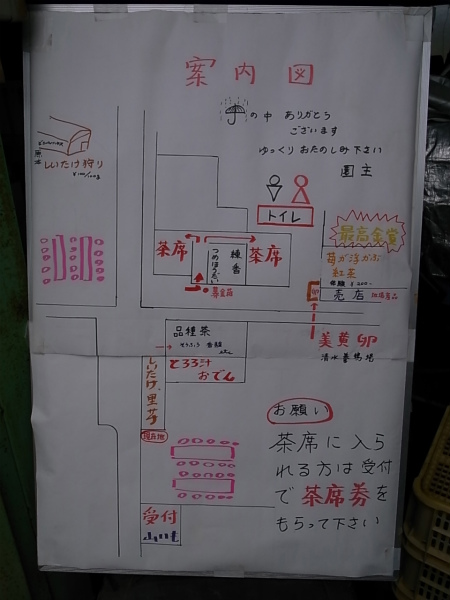 案内図
の中 ありがとう
ございます
ゆっくり おたのしみ下さい
園主
しいたけ狩り
トイレ
最高金賞
茶席
つめほうだい
茶席
苺が浮かぶ
紅茶
売店
美黄卵
品種茶
とろろ汁
おでん
しいたけ、里芋
現在地
お願い
茶席に入ら
れる方は受付
で茶席券を
もらって下さい
受付